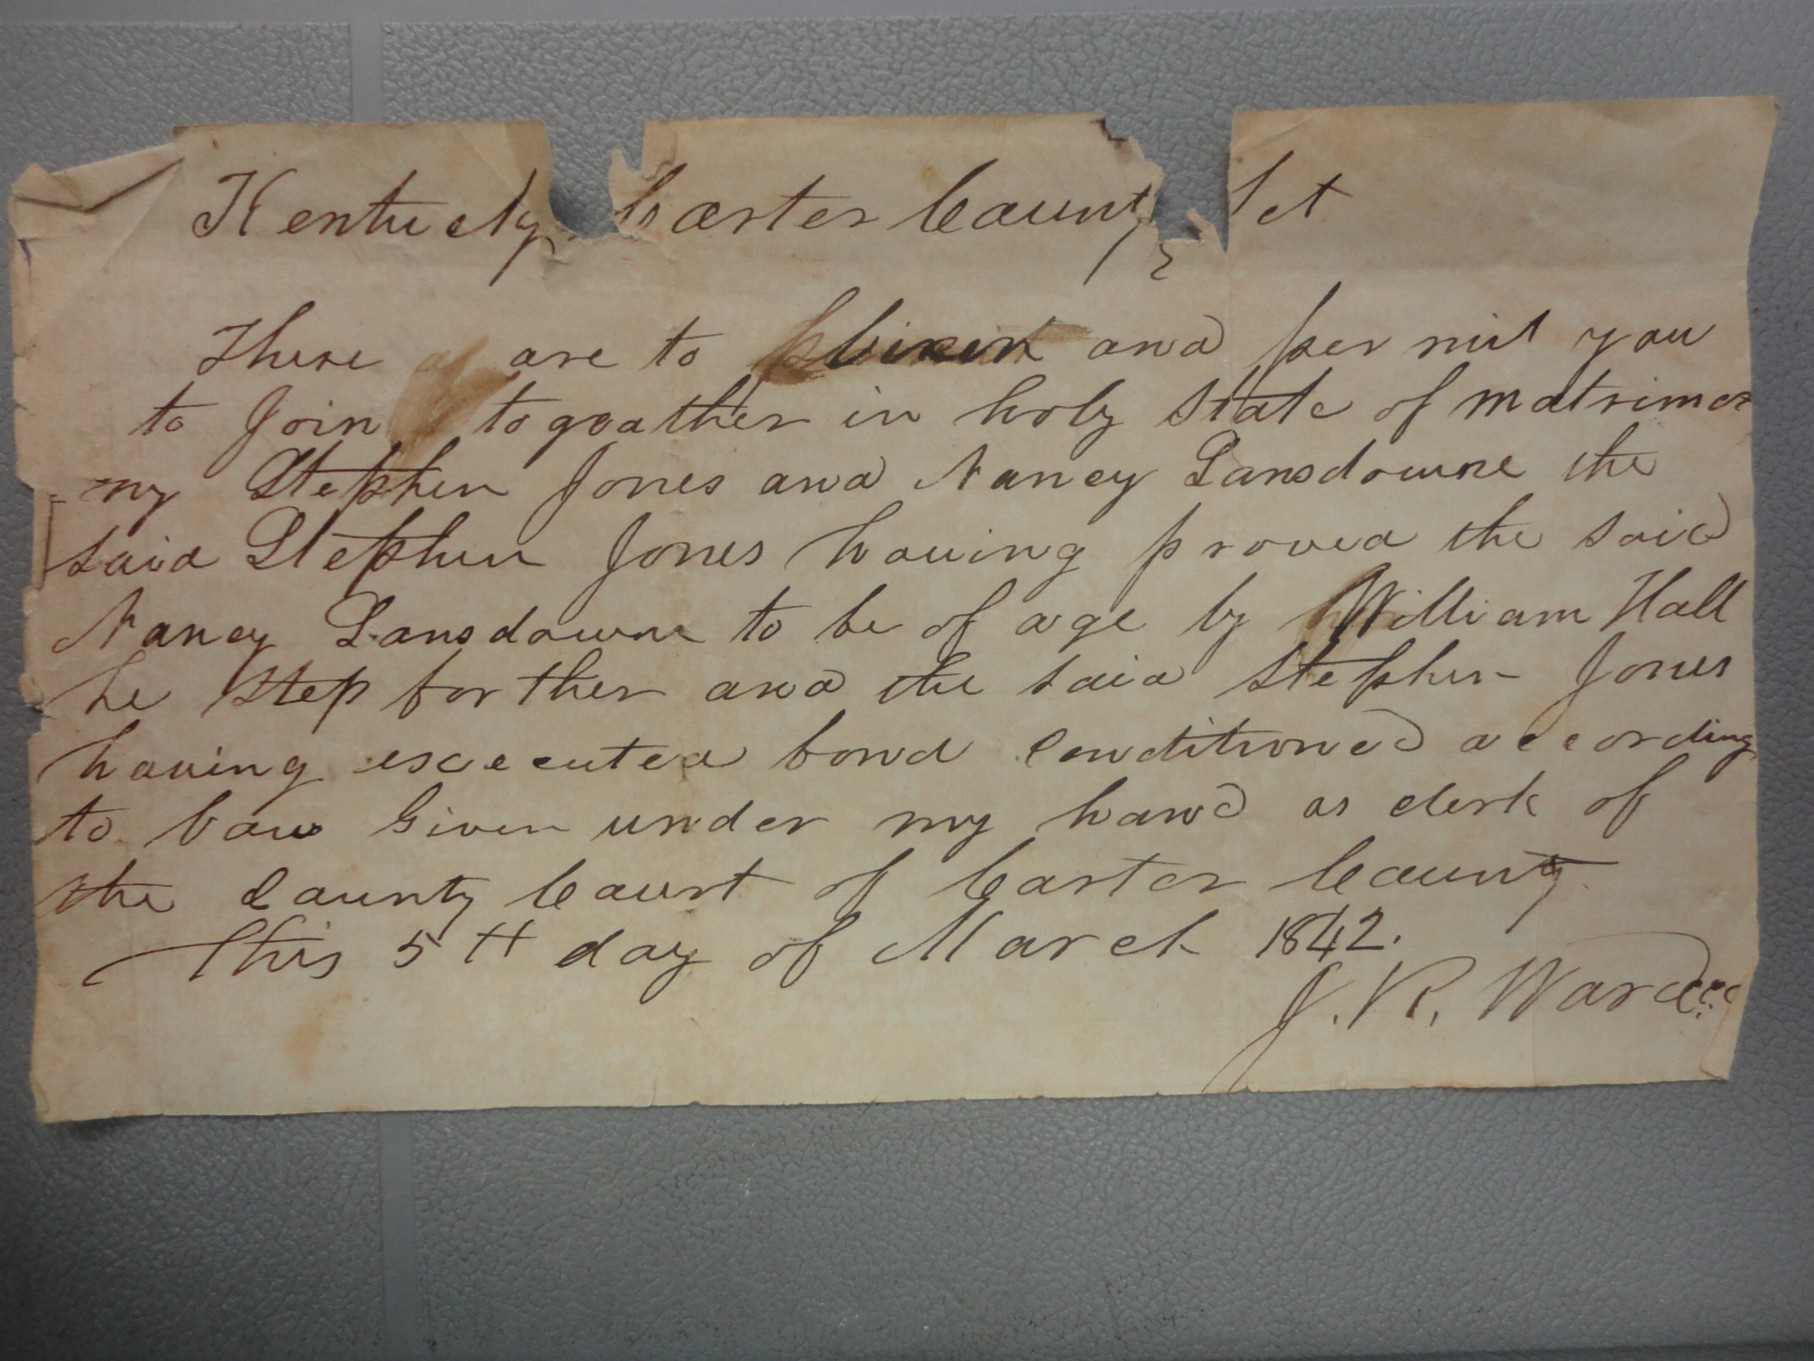 Kentucky Carter County Sct
These are to and permit you
to Join togeather in holy State of matrimo
ny Stephen Jones and Nancy Lansdowne the
said Stephen Jones having proved the said
Nancy Lansdowne to be of age by William Hall
he step forther and the said Stephen Jones
having executed bond Conditioned according
to Law Given under my hand as clerk of
the County Court of Carter County
this 5th day of March 1842.
J. R. Ward